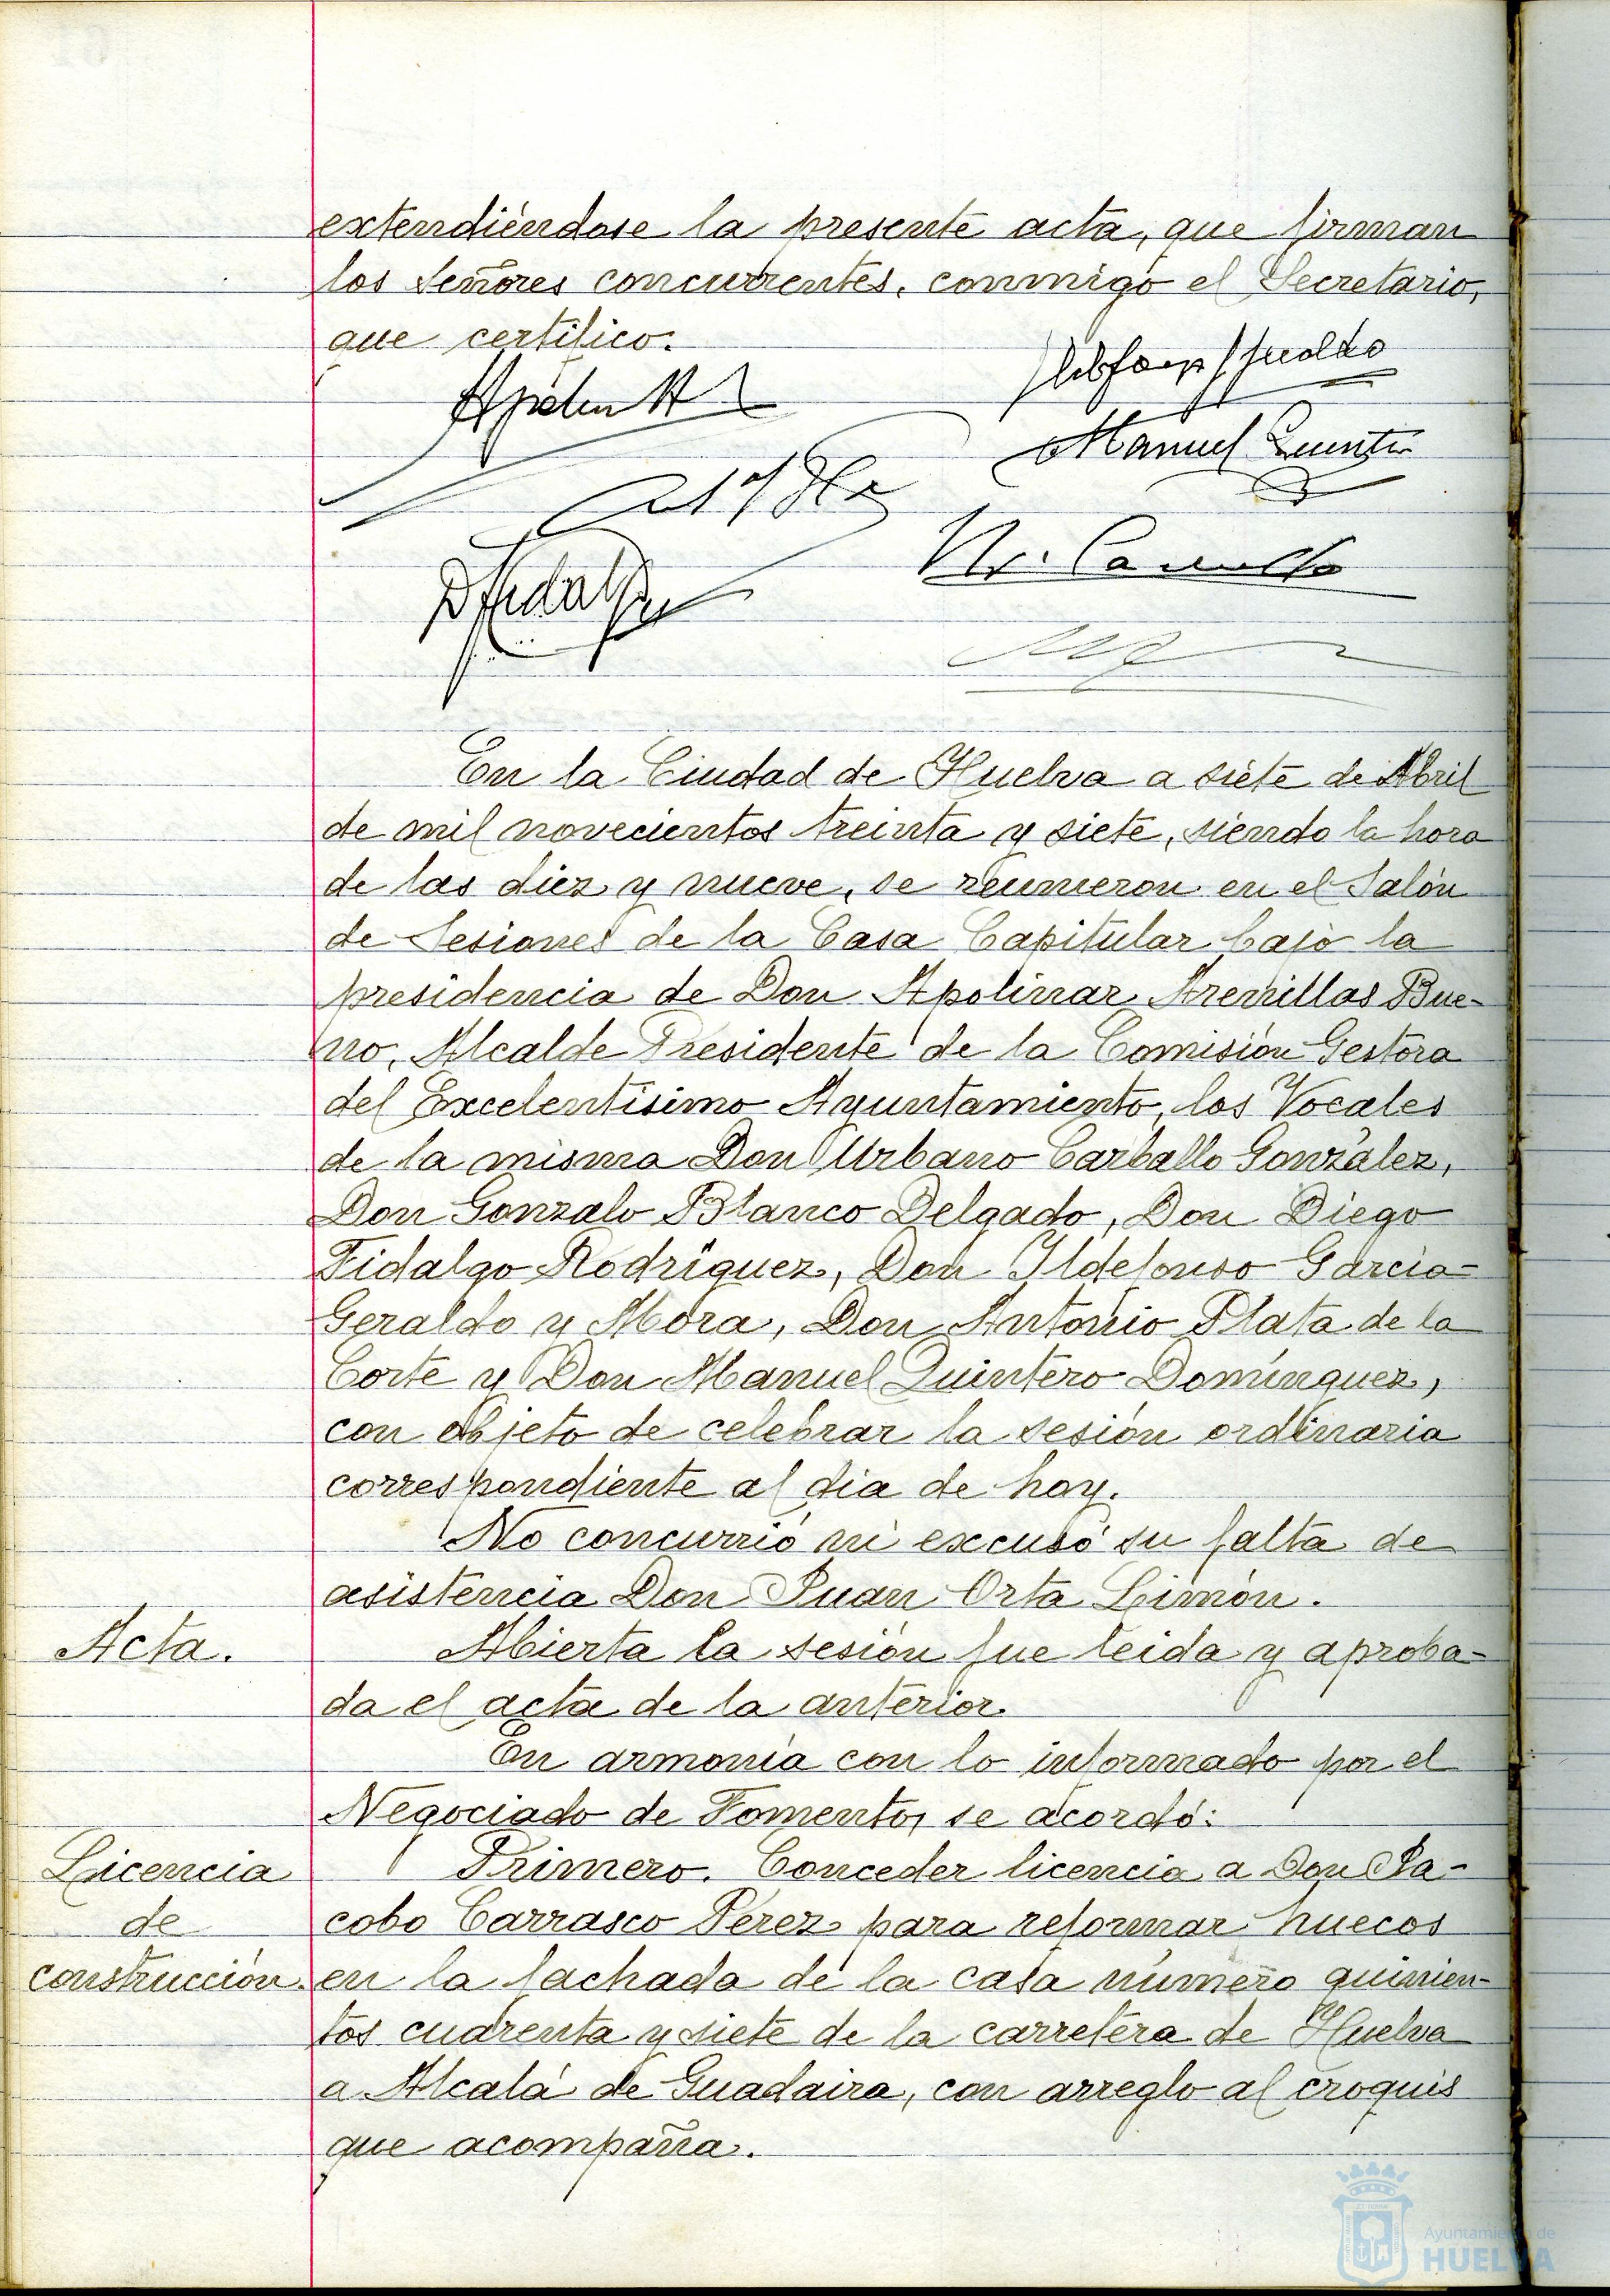 extendiéndose la presente acta, que firman
los Señores concurrentes, conmigo el Secretario,
que certifico.
Manuel Quintero
En la Ciudad de Huelva a siete de Abril
de mil novecientos treinta y siete, siendo la hora
de las diez y nueve, se reunieron en el Salón
de Sesiones de la Casa Capitular bajo la
presidencia de Don Apolinar Arenillas Bue-
no, Alcalde Presidente de la Comisión Gestora
del Excelentísimo Ayuntamiento, los Vocales
de la misma Don Urbano Carballo González,
Don Gonzalo Blanco Delgado, Don Diego
Fidalgo Rodríguez, Don Ildefonso García-
Geraldo y Mora, Don Antonio Plata de la
Corte y Don Manuel Quintero Domínguez,
con objeto de celebrar la sesión ordinaria
correspondiente al dia de hoy.
No concurrió ni excusó su falta de
asistencia Don Juan Orta Limón.
Acta.
Abierta la sesión fue leida y aproba-
da el acta de la anterior.
En armonía con lo informado por el
Negociado de Fomento, se acordó:
Licencia
de
construcción.
Primero. Conceder licencia a Don Ja-
cobo Carrasco Pérez para reformar huecos
en la fachada de la casa número quinien-
tos cuarenta y siete de la carretera de Huelva
a Alcalá de Guadaira, con arreglo al croquis
que acompaña.
Ayuntamiento de
HUELVA